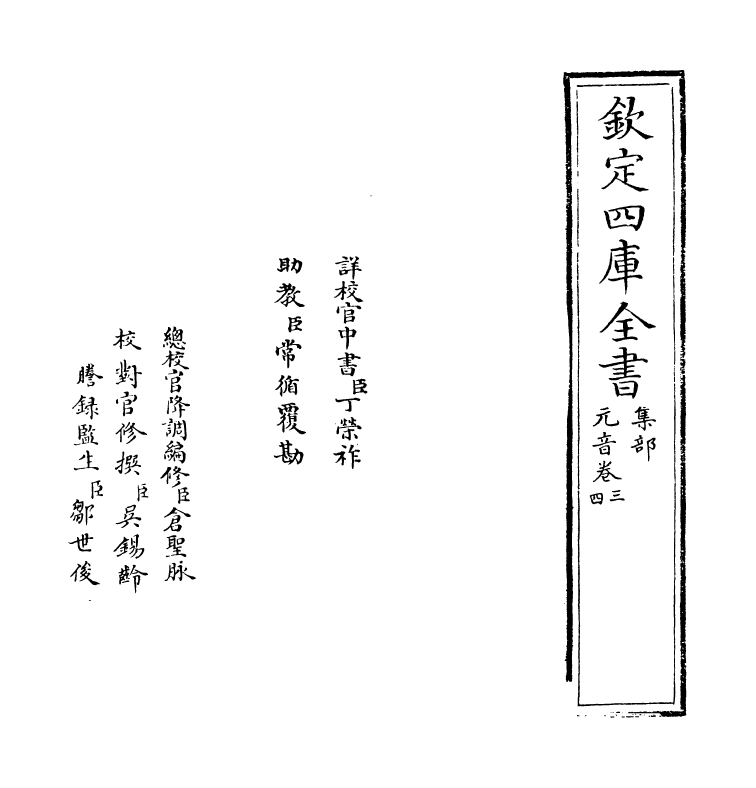 欽定四庫全書
集部
元音卷三
四
詳校官中書臣丁榮祚
助教臣常循覆勘
總校官降調編修臣倉聖脉
校對官修撰臣吳錫齡
謄録監生臣鄒世俊